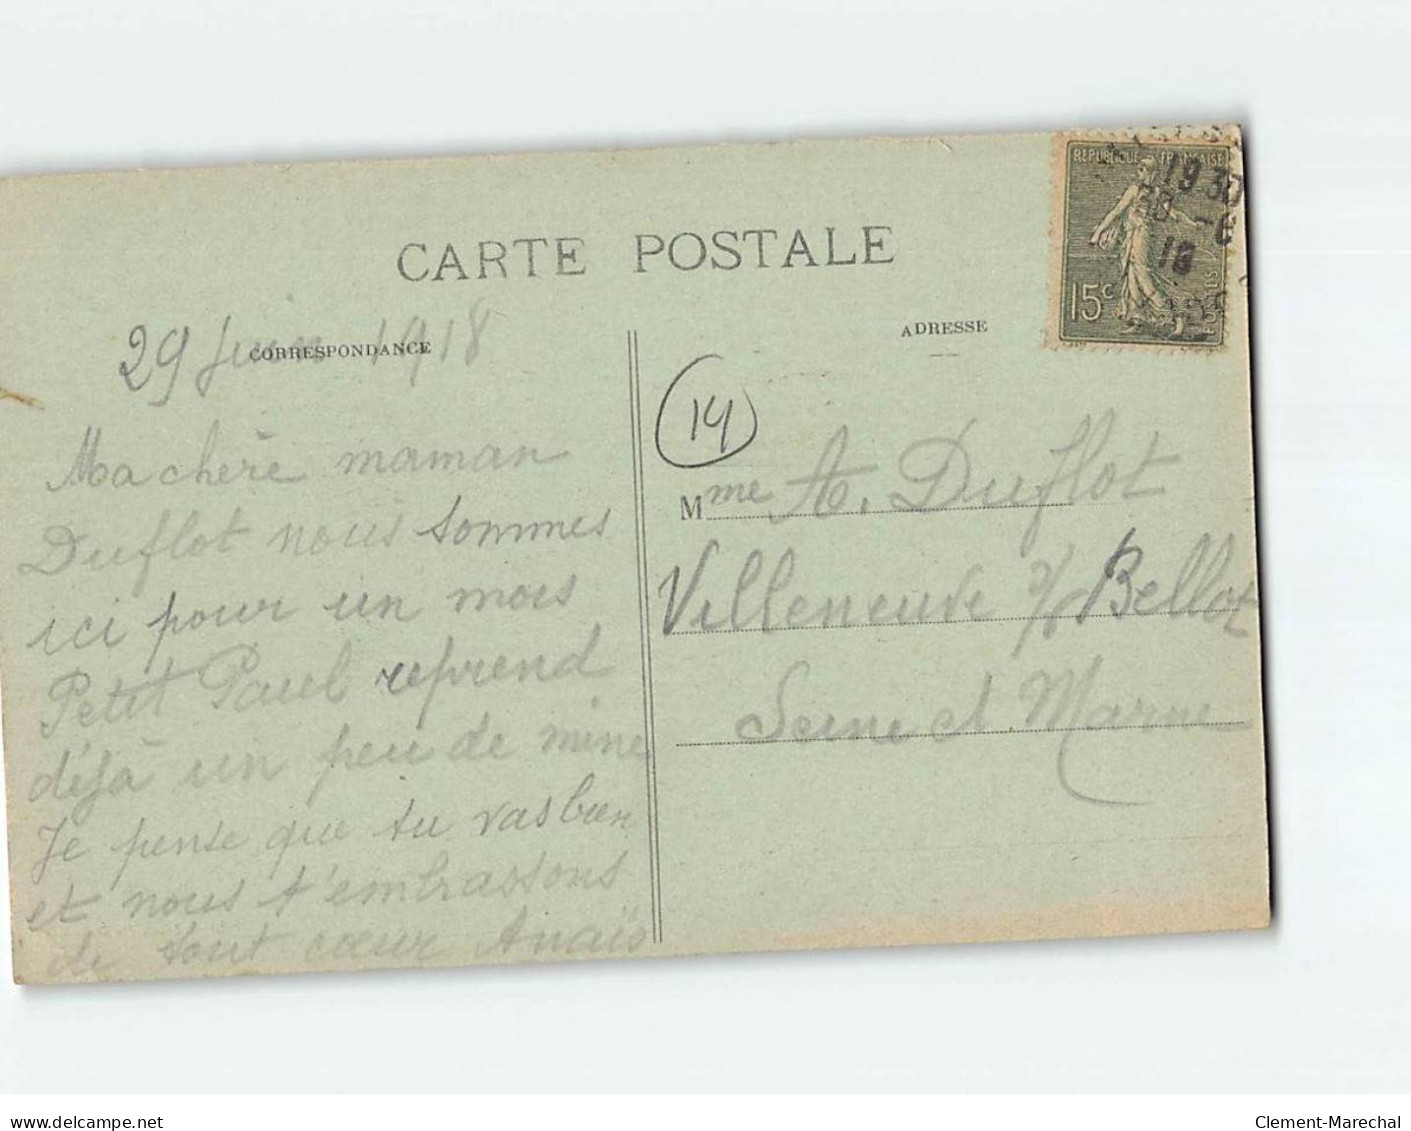 CARTE POSTALE
CORRESPONDANCE
ADRESSE
RÉPUBLIQUE FRANÇAISE
15c
19 30
30 -6
18
29 Juin 1918
Ma chère maman
Duflot nous sommes
ici pour un mois
Petit Paul reprend
déjà un peu de mine
Je pense que tu vas bien
et nous t'embrassons
de tout cœur Anaïs
14
Mme A. Duflot
Villeneuve s/ Bellot
Seine et Marne
www.delcampe.net
Clement-Marechal